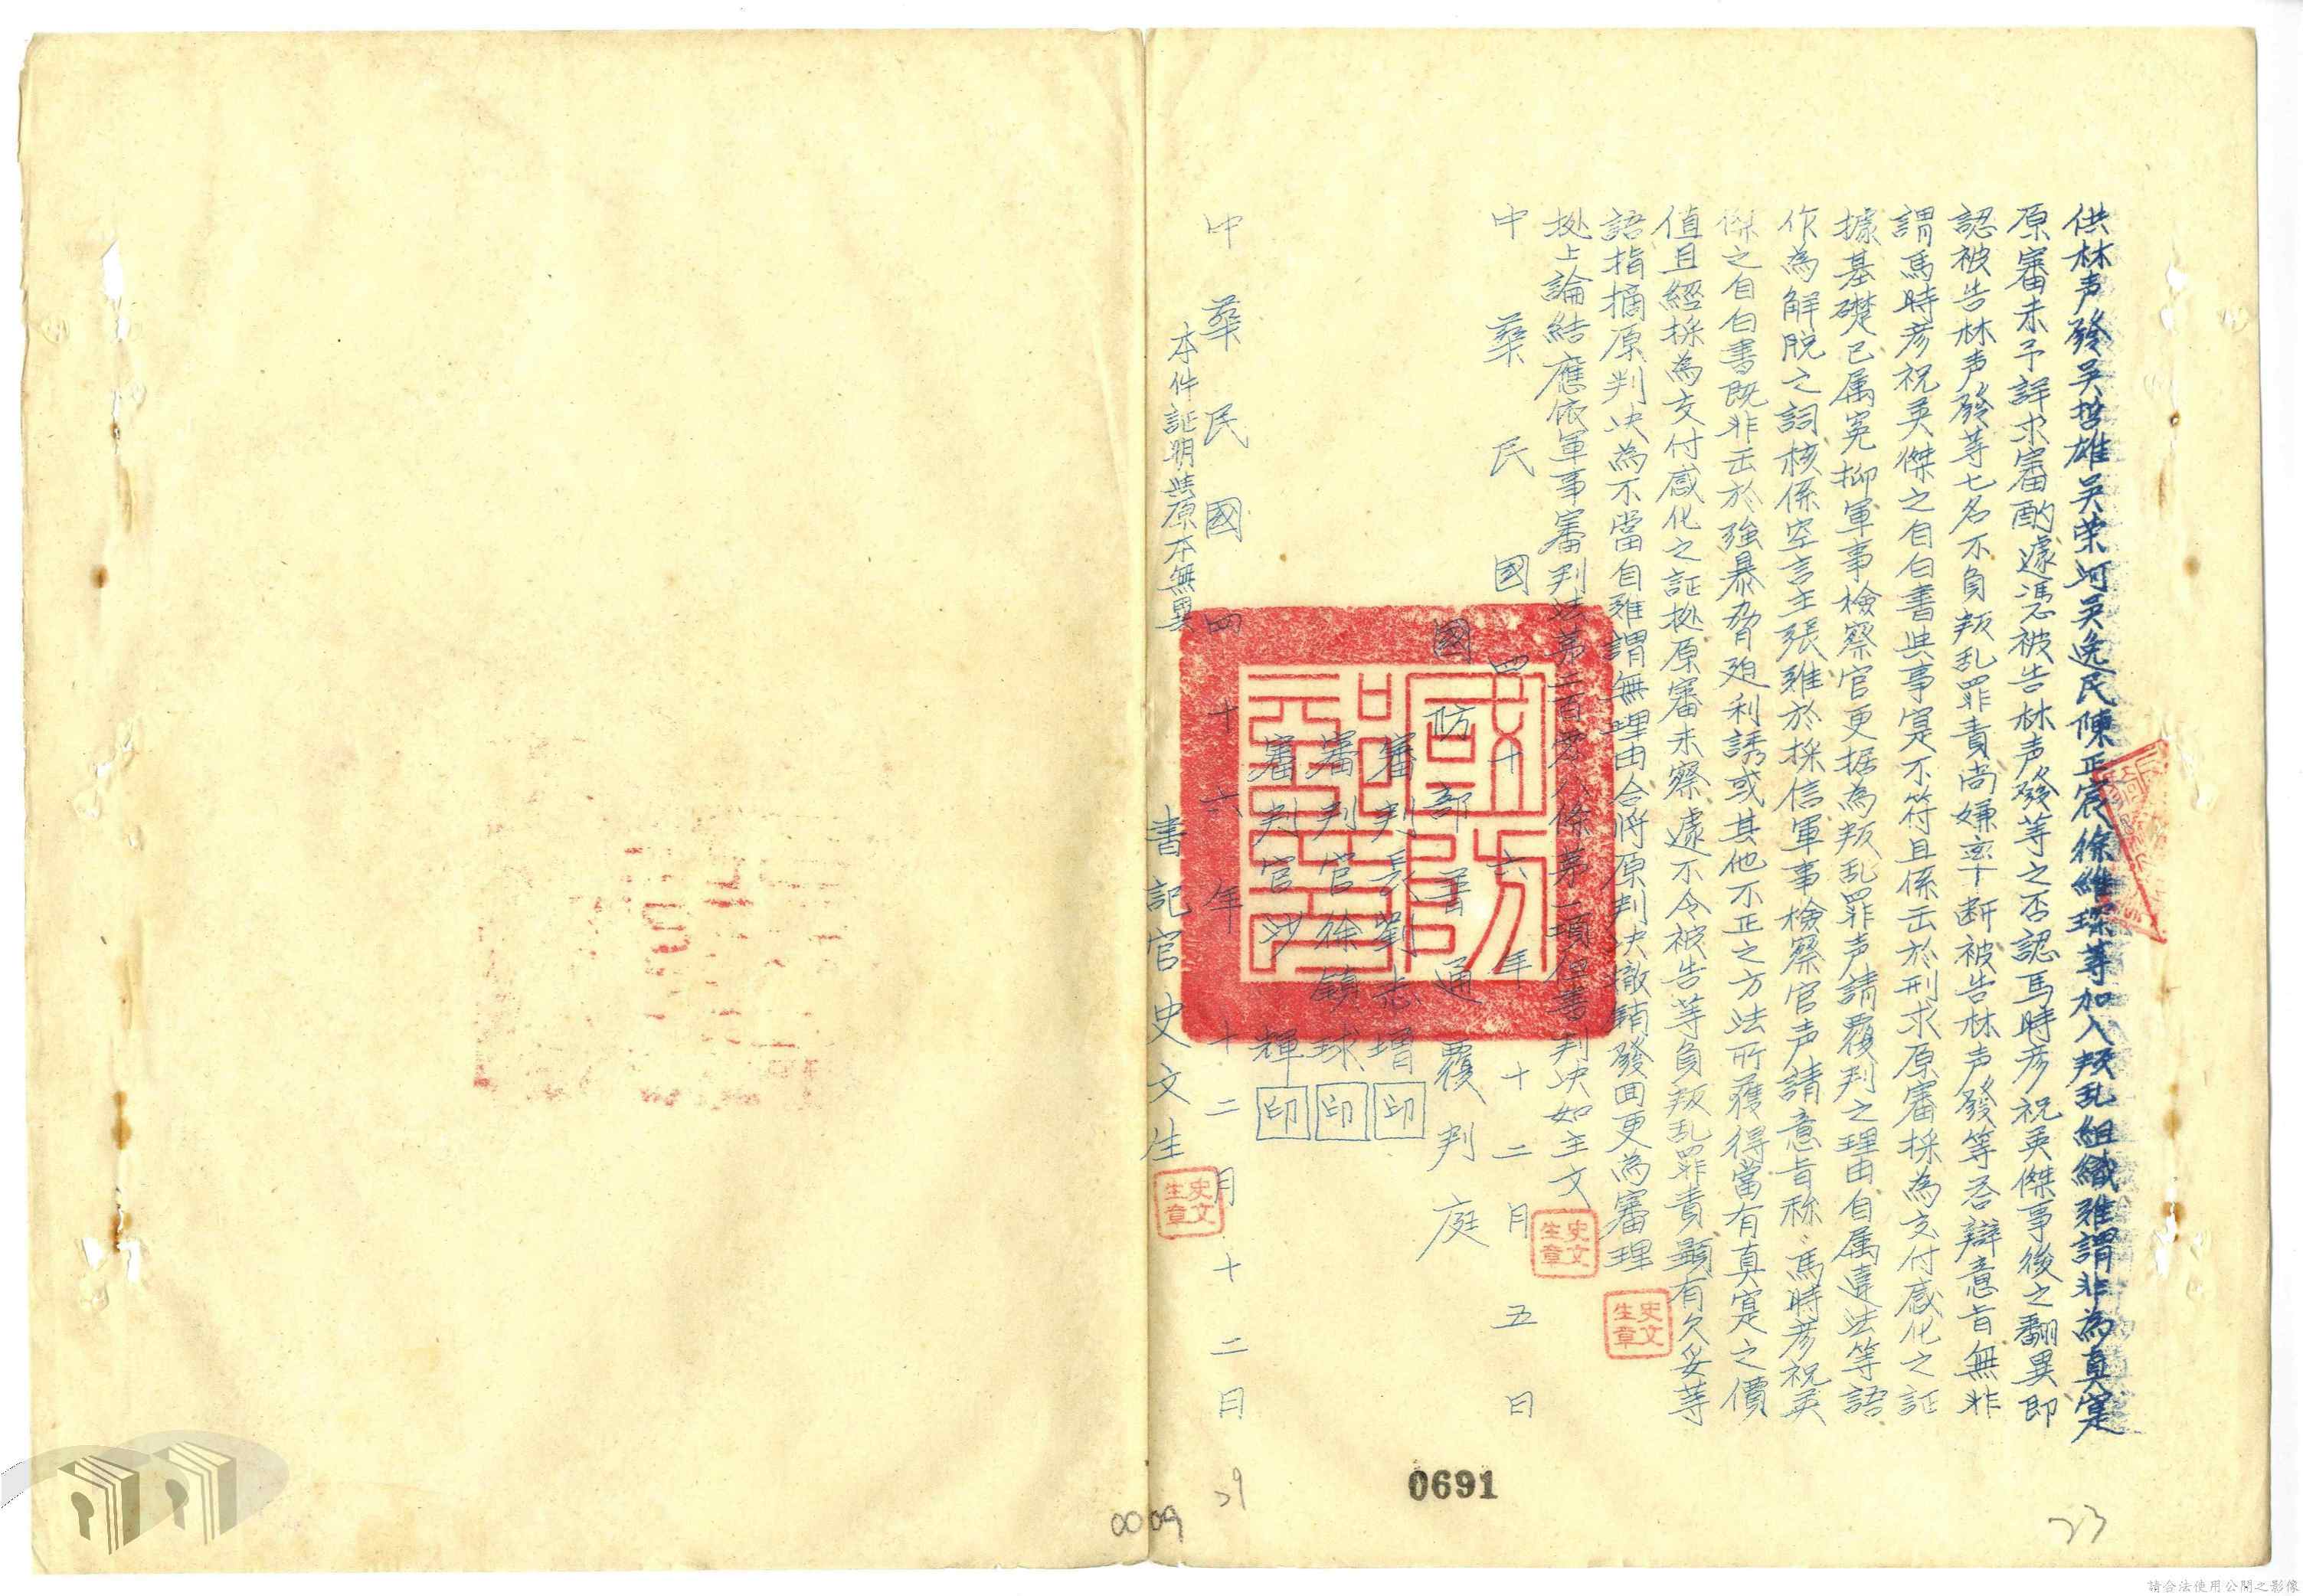 供林声發吳哲雄吳荣河吳逸民陳正宸徐維琛等加入叛乱組織雖謂非為真寔
原審未予詳求審酌遽憑被告林声發等之否認馬時彦祝英傑事後之翻異即
認被告林声發等七名不負叛乱罪責尚嫌率断被告林声發等答辯意旨無非
謂馬時彦祝英傑之自白書與事寔不符且係出於刑求原審採為交付感化之証
據基礎已属冤抑軍事檢察官更据為叛乱罪声請覆判之理由自属違法等語
作為解脱之詞核係空言主張雖於採信軍事檢察官声請意旨称馬時彦祝英
傑之自白書既非出於強暴脅廹利誘或其他不正之方法所獲得當有真寔之價
值且經採為交付感化之証拠原審未察遽不令被告等負叛乱罪責顯有欠妥等
語指摘原判决為不當自难謂無理由合將原判决撤銷發回更為審理
拠上論結應依軍事審判法第二百零八條第一項但書判决如主文
中華民國四十六年十二月五日
國防部普通覆判庭
審判長劉志增印
審判官徐鎮球印
審判官沙輝印
中華民國四十六年十二月十二日
本件証明與原本無異
書記官史文生
國防部印
史文生章
史文生章
史文生章
0691
0009
29
23
請合法使用公開之影像